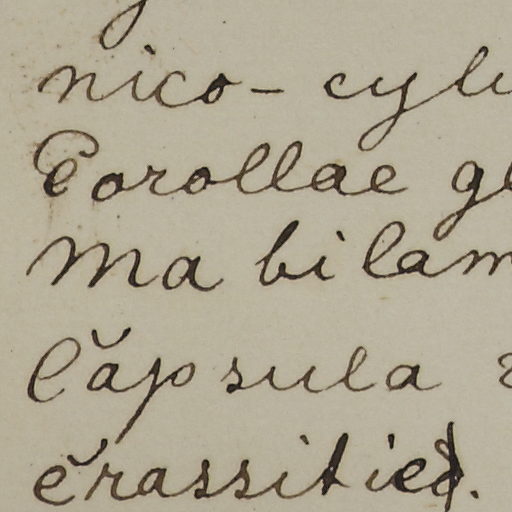 nico-cyli
Corollae gl
ma bilam
Căpsula
crassitiei.